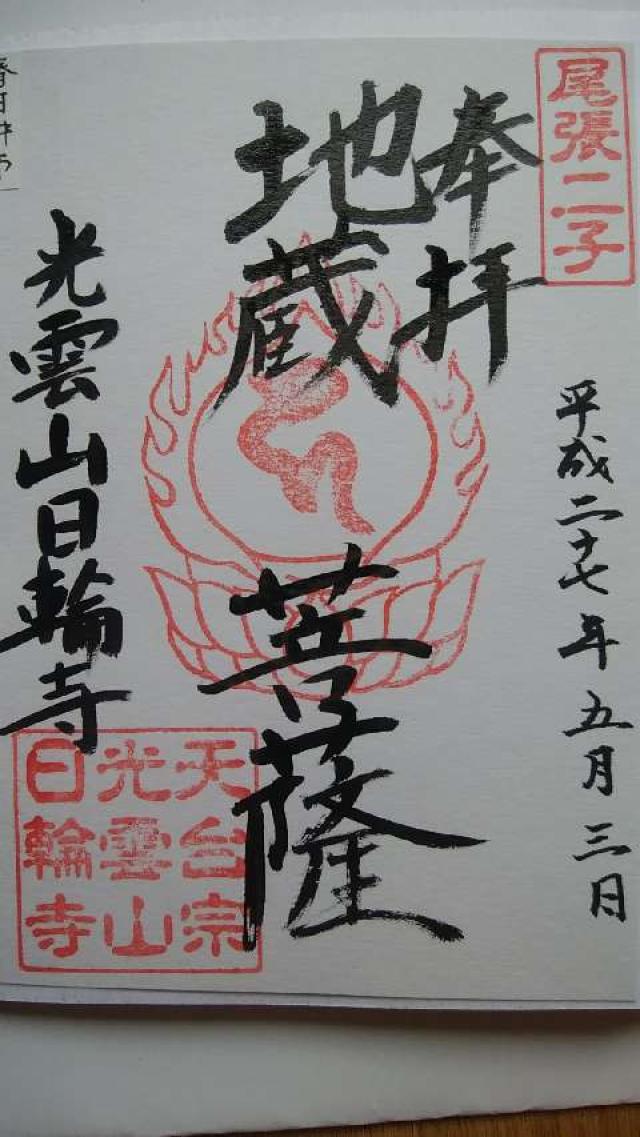 尾張二二子
奉拝
平成二十七年五月三日
地蔵菩薩
光雲山日輪寺
天台宗
光雲山
日輪寺
春日井市